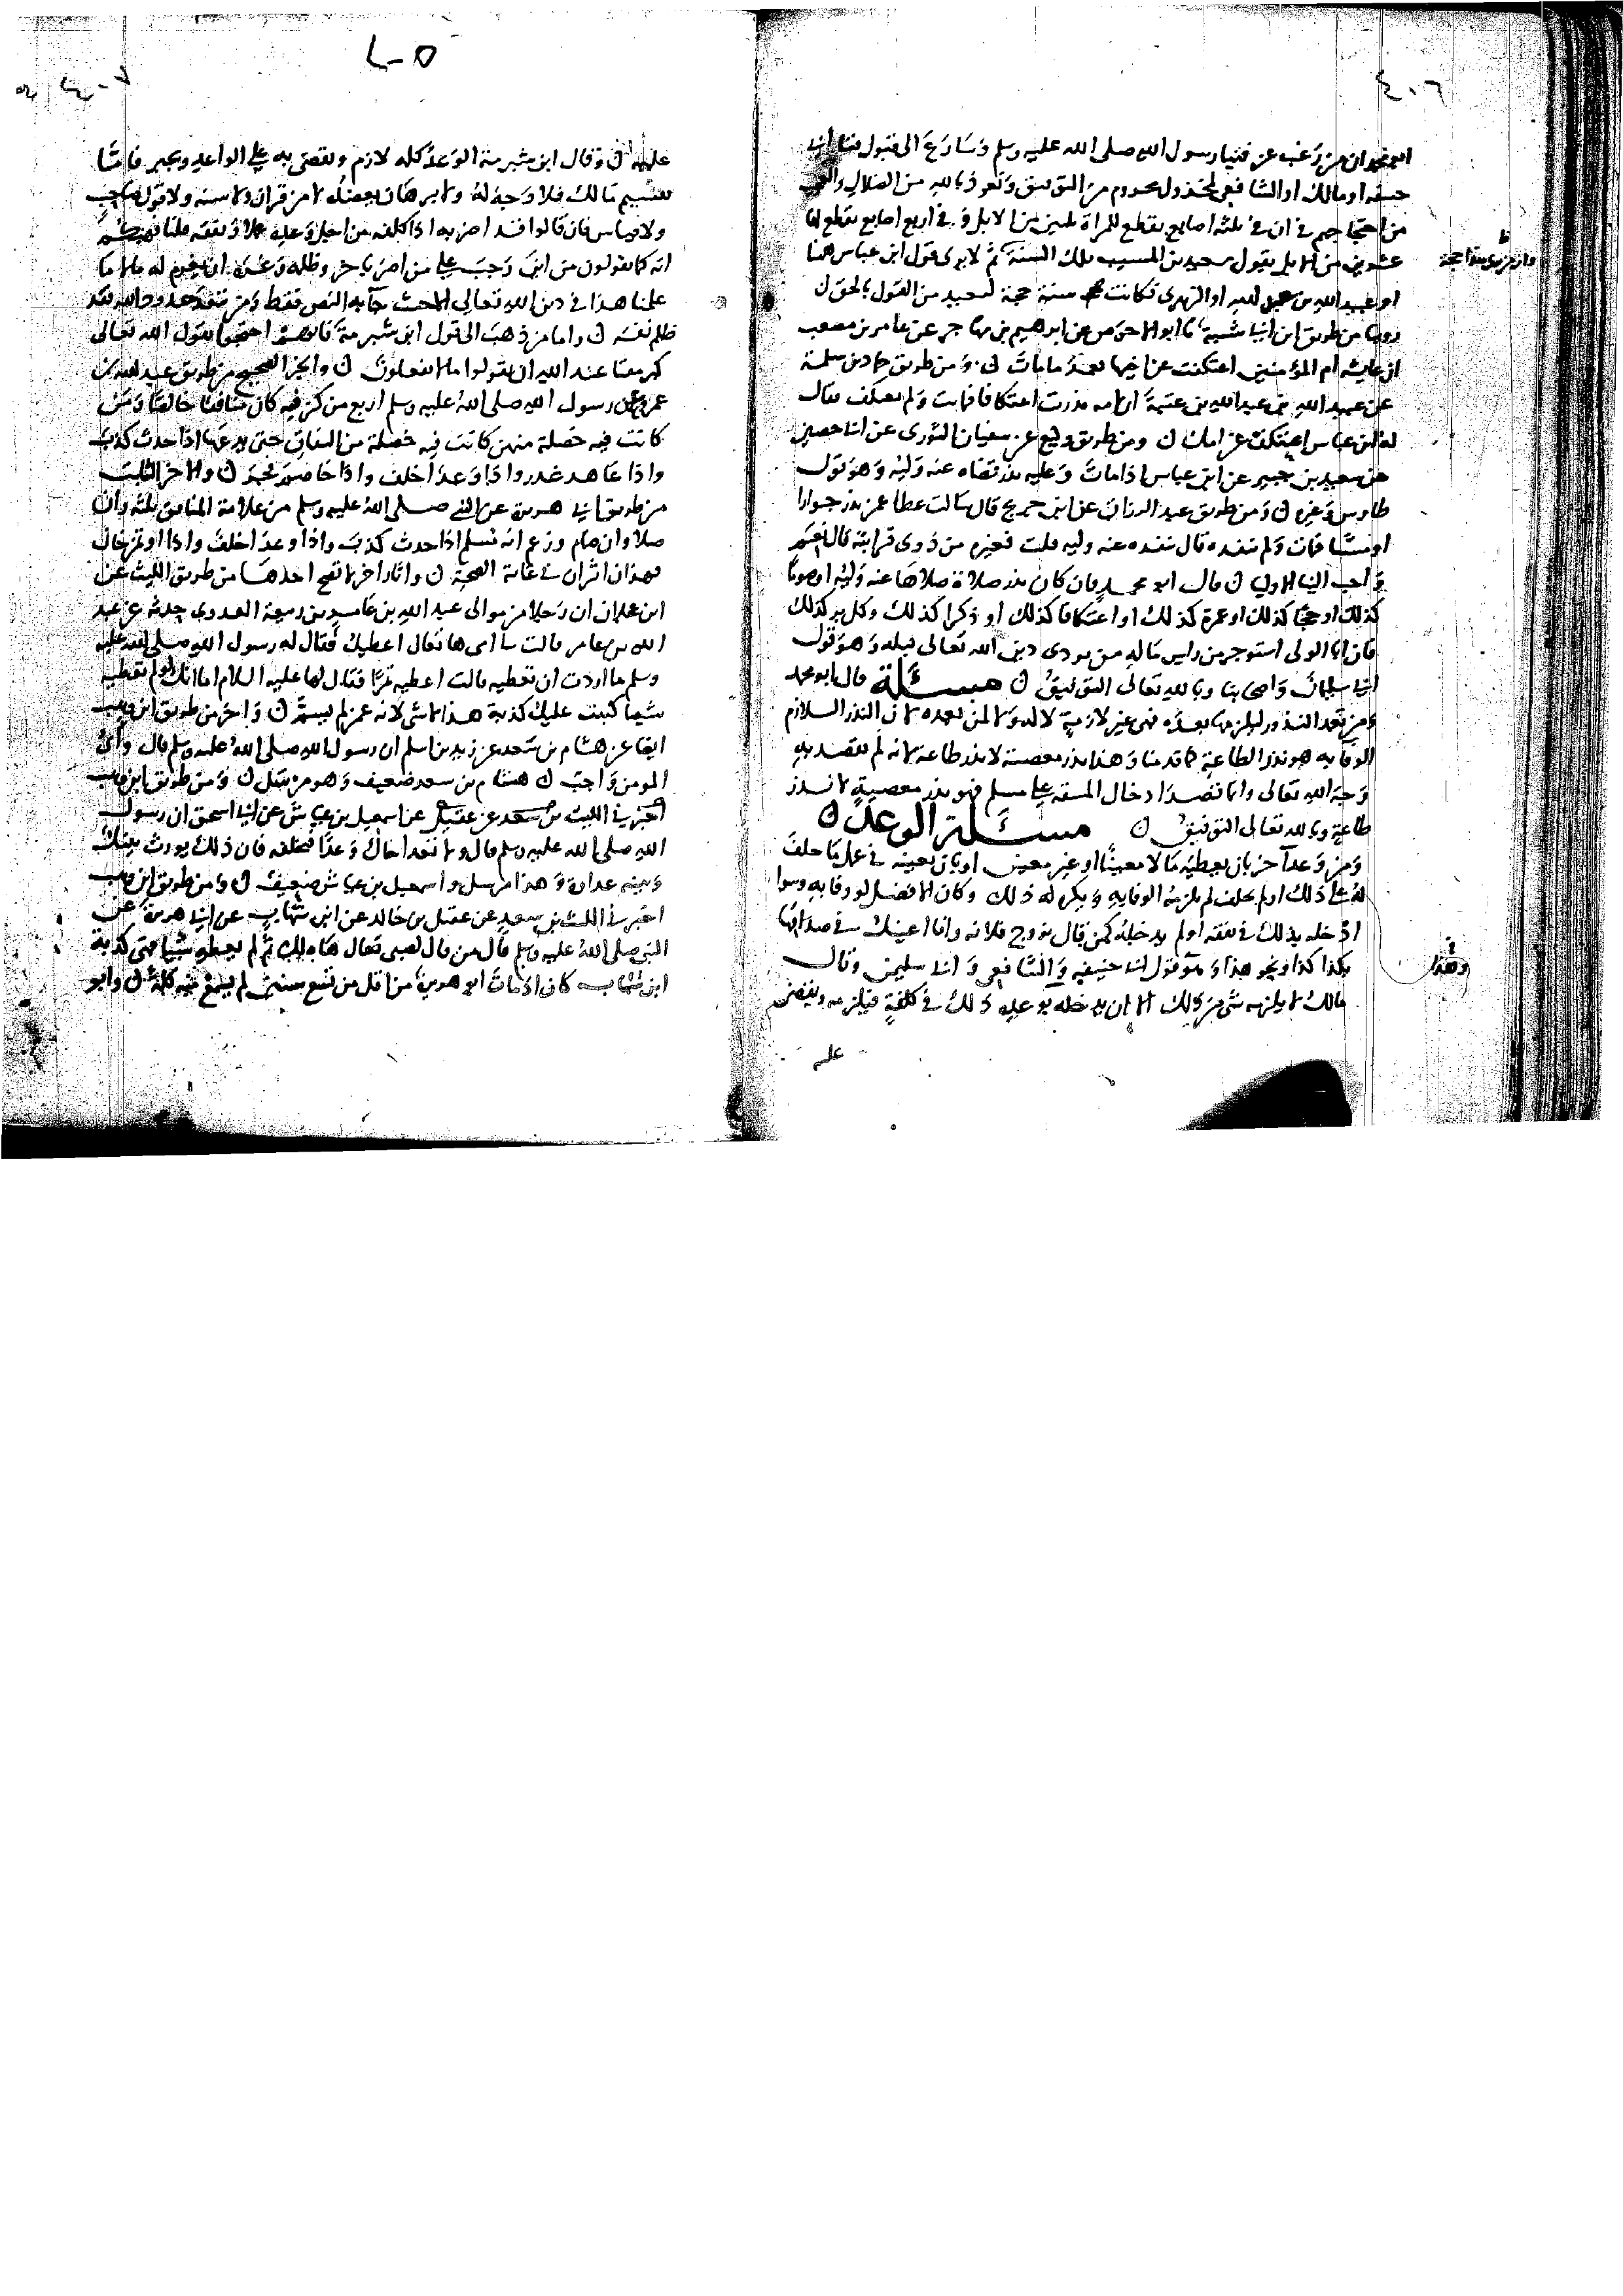 ٤٠٦
عن رغب عن فتيا رسول الله صلى الله عليه وسلم وسارع الى قبول
حنيفة او مالك او الشافعي لمخذول محروم من التوفيق ونعوذ بالله من الضلال
من احتجاجهم في ان في ثلثه اصابع تقطع للمراة ثلثين من الابل وفي اربع اصابع تقطع لها
عشرين من الابل بقول سعيد بن المسيب تلك السنة ثم لا يرى قول ابن عباس هنا
او عبيد الله بن عبد الله او الزهري فكانت سنة حجة لسعيد من القول بالحق ن
روينا من طريق ابن ابي شيبة نا ابو الاحوص عن ابرهيم بن مهاجر عن عامر بن مصعب
ان عايشه ام المؤمنين اعتكفت عن اخيها بعد ما مات ن ومن طريق حماد بن سلمة
عن عبيد الله بن عبد الله بن عتبة ان امه نذرت اعتكافا فماتت ولم تعتكف فقال
له ابن عباس اعتكف عن امك ن ومن طريق وكيع عن سفيان الثوري عن ابي حصين
عن سعيد بن جبير عن ابن عباس اذا مات وعليه نذر قضاه عنه وليه وهو قول
طاوس وغيره ن ومن طريق عبد الرزاق عن ابن جريج قال سالت عطا عمن نذر جوارا
او مشيا فمات ولم ينفذه قال ينفذه عنه وليه قلت فغيره من ذوي قرابته قال نعم
واحب الينا الولي ن قال ابو محمد فان كان نذر صلاة صلاها عنه وليه او صوما
كذلك او حجا كذلك او عمرة كذلك او اعتكافا كذلك او ذكرا كذلك وكل بر كذلك
فان ابا الولي استوجر من راس ماله من يودي دين الله تعالى قبله وهو قول
ابي سليمان واصحابنا وبالله تعالى التوفيق ن مسئلة قال ابو محمد
ومن تعمد النذور ليلزمها بعده فهي غير لازمة لا له ولا لمن بعده لان النذر اللازم
الوفا به هو نذر الطاعة كما قدمنا وهذا نذر معصية لا نذر طاعة لانه لم يقصد به
وجه الله تعالى وانما قصد ادخال المشقة على مسلم فهو نذر معصية لا نذر
طاعة وبالله تعالى التوفيق ن مسئلة الوعد ن
ومن وعد آخر بان يعطيه مالا معينا او غير معين او بان يعينه في عمل ما حلف
له على ذلك او لم يحلف لم يلزمه الوفا به ويكره له ذلك وكان الافضل لو وفا به وسوا
ادخله بذلك في نفقه او لم يدخله كمن قال تزوج فلانه وانا اعينك في صداقها
بكذا كذا ونحو هذا وهو قول ابي حنيفه والشافعي وابي سليمن وقال
مالك لا يلزمه شي من ذلك الا ان يدخله بوعده ذلك في كلفة فيلزمه ويقضى
عليه
وهذا
٤٠٧
عليه ن وقال ابن شبرمة الوعد كله لازم ويقضى به على الواعد ويجبر فاما
تقسيم مالك فلا وجه له ولا برهان يعضده لا من قران ولا سنه ولا قول صاحب
ولا قياس فان قالوا قد اضر به اذا كلفه من اجل وعده عملا ونفقه قلنا فهبكم
انه كما تقولون من اين وجب على من اضر باخر وظلمه وغره ان يغرم له مالا ما
علمنا هذا في دين الله تعالى الا حيث جا به النص فقط ومن يتعد حدود الله فقد
ظلم نفسه ن واما من ذهب الى قول ابن شبرمة فانهم احتجوا بقول الله تعالى
كبر مقتا عند الله ان تقولوا ما لا تفعلون ن والخبر الصحيح من طريق عبد الله بن
عمرو عن رسول الله صلى الله عليه وسلم اربع من كن فيه كان منافقا خالصا ومن
كانت فيه خصلة منهن كانت فيه خصلة من النفاق حتى يدعها اذا حدث كذب
واذا عاهد غدر واذا وعد اخلف واذا خاصم فجر ن والاخر الثابت
من طريق ابي هريرة عن النبي صلى الله عليه وسلم من علامة المنافق ثلثة وان
صلا وان صام وزعم انه مسلم اذا حدث كذب واذا وعد اخلف واذا اوتمن خان
فهذان اثران في غاية الصحة ن واثار اخر لا تصح احدها من طريق الليث عن
ابن عجلان ان رجلا من موالي عبد الله بن عامر بن ربيعة العدوي حدثه عن عبد
الله بن عامر قالت امي ها تعال اعطيك فقال لها رسول الله صلى الله عليه
وسلم ما اردت ان تعطيه قالت اعطيه تمرا فقال لها عليه السلام اما انك لو لم تعطيه
شيا كتبت عليك كذبة هذا لا شي لانه عمن لم يسم ن واخر من طريق ابن وهب
ايضا عن هشام بن سعد عن زيد بن اسلم ان رسول الله صلى الله عليه وسلم قال واي
المومن واجب ن هشام بن سعد ضعيف وهو مرسل ن ومن طريق ابن وهب
اخبرني الليث بن سعد عن عقيل عن اسمعيل بن عياش عن ابي اسحق ان رسول
الله صلى الله عليه وسلم قال ولا تعد اخاك وعدا فتخلفه فان ذلك يورث بينك
وبينه عداوة وهذا مرسل واسمعيل بن عياش ضعيف ن ومن طريق ابن وهب
اخبرني الليث بن سعد عن عقيل بن خالد عن ابن شهاب عن ابي هريرة عن
النبي صلى الله عليه وسلم قال من قال لصبي تعال هاه لك ثم لم يعطه شيا فهي كذبة
ابن شهاب كان اذ مات ابو هريرة من اقل من تسع سنين لم يسمع منه كلمة ن وابو